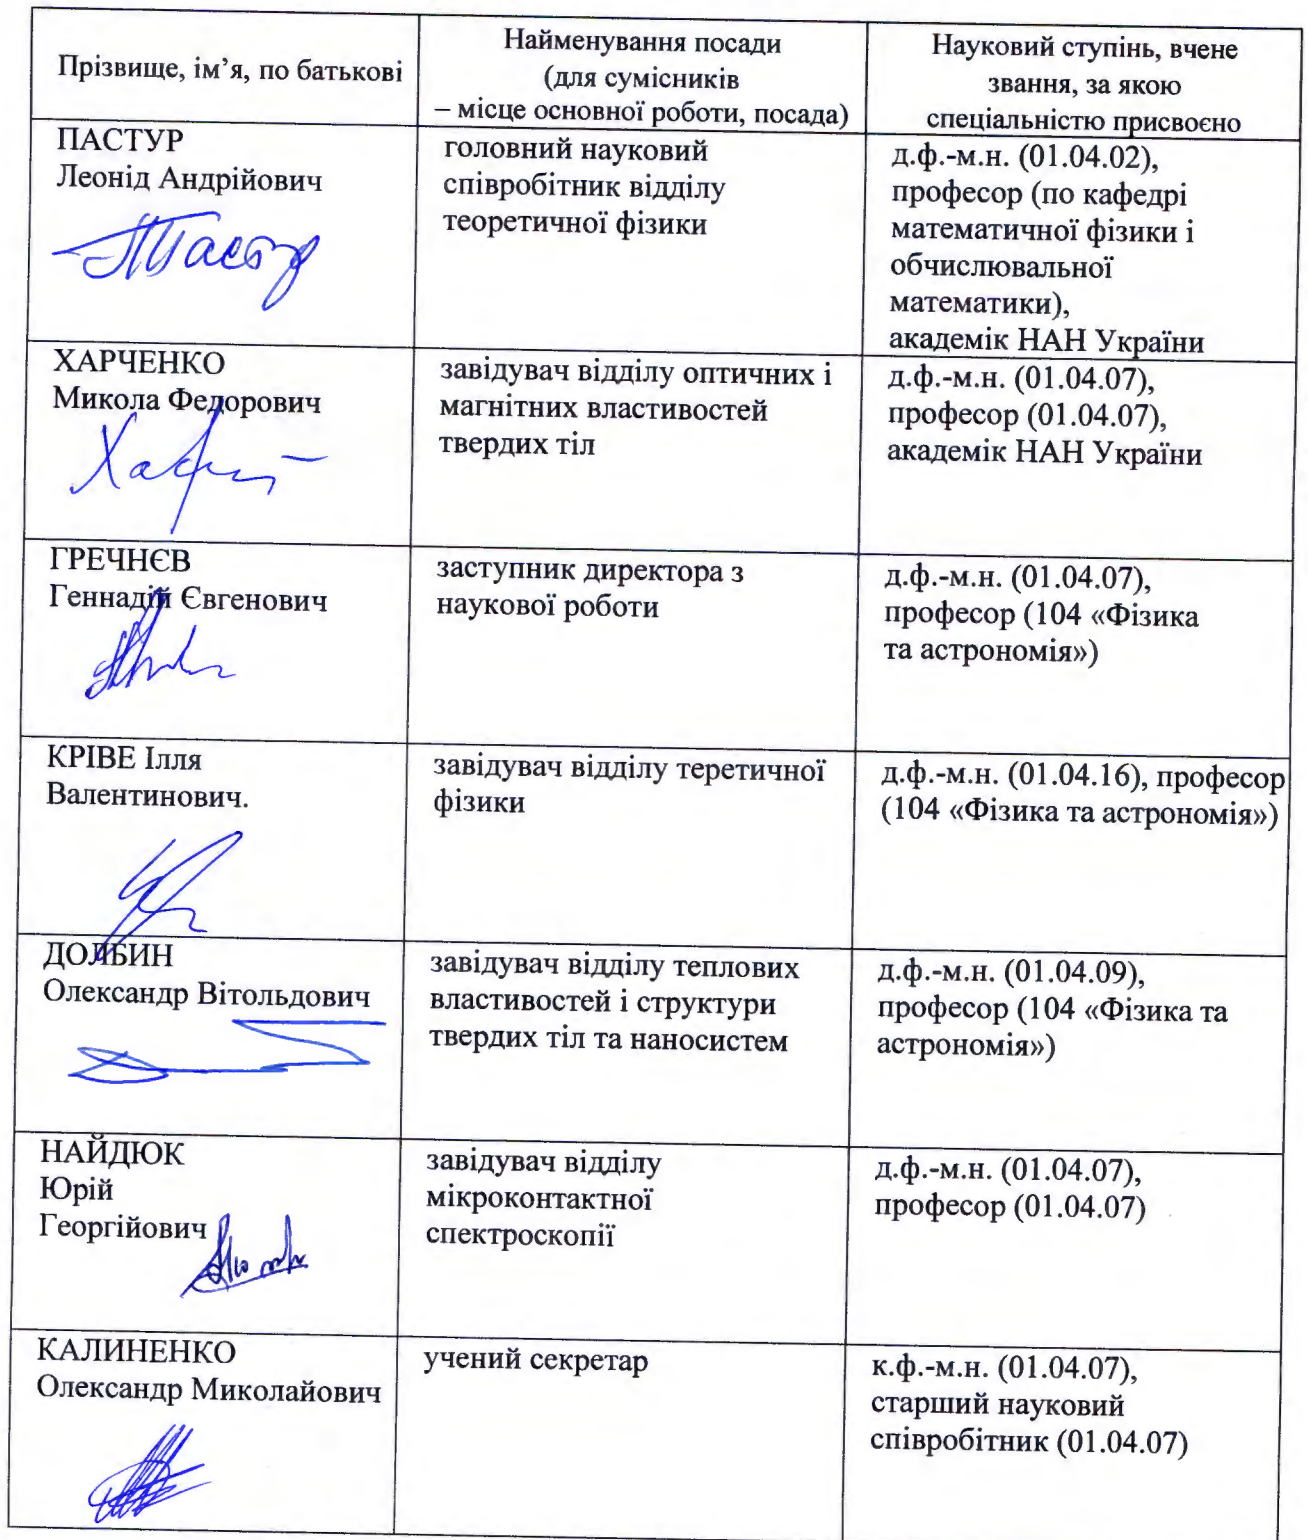 Прізвище, ім’я, по батькові
Найменування посади
(для сумісників
– місце основної роботи, посада)
Науковий ступінь, вчене
звання, за якою
спеціальністю присвоєно
ПАСТУР
Леонід Андрійович
головний науковий
співробітник відділу
теоретичної фізики
д.ф.-м.н. (01.04.02),
професор (по кафедрі
математичної фізики і
обчислювальної
математики),
академік НАН України
ХАРЧЕНКО
Микола Федорович
завідувач відділу оптичних і
магнітних властивостей
твердих тіл
д.ф.-м.н. (01.04.07),
професор (01.04.07),
академік НАН України
ГРЕЧНЄВ
Геннадій Євгенович
заступник директора з
наукової роботи
д.ф.-м.н. (01.04.07),
професор (104 «Фізика
та астрономія»)
КРІВЕ Ілля
Валентинович.
завідувач відділу теретичної
фізики
д.ф.-м.н. (01.04.16), професор
(104 «Фізика та астрономія»)
ДОЛБИН
Олександр Вітольдович
завідувач відділу теплових
властивостей і структури
твердих тіл та наносистем
д.ф.-м.н. (01.04.09),
професор (104 «Фізика та
астрономія»)
НАЙДЮК
Юрій
Георгійович
завідувач відділу
мікроконтактної
спектроскопії
д.ф.-м.н. (01.04.07),
професор (01.04.07)
КАЛИНЕНКО
Олександр Миколайович
учений секретар
к.ф.-м.н. (01.04.07),
старший науковий
співробітник (01.04.07)